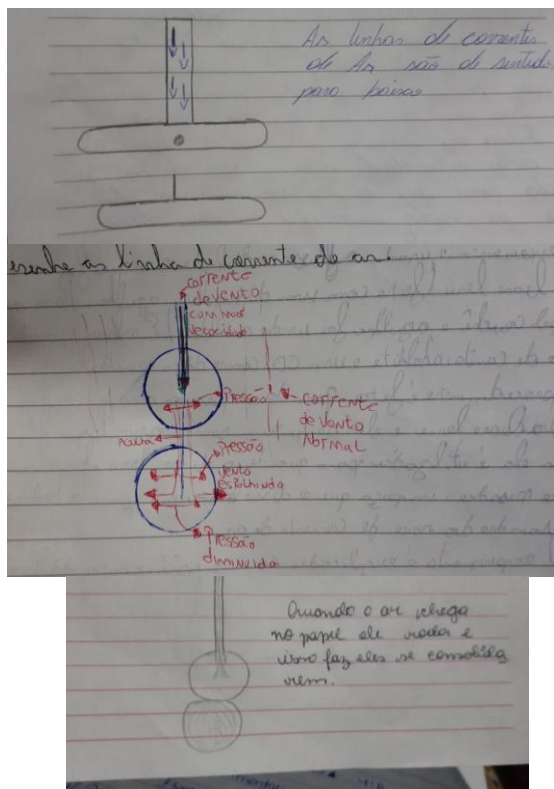 As linhas de correntes
de Ar são de sentido
para baixo
esenhe as linha de corrente de ar.
corrente
de vento
com mais
velocidade
Pressão
corrente
de vento
normal
Pressão
vento
espalhando
Pressão
diminuida
Quando o ar chega
no papel ele rodar e
isso faz eles se consolida
rem.